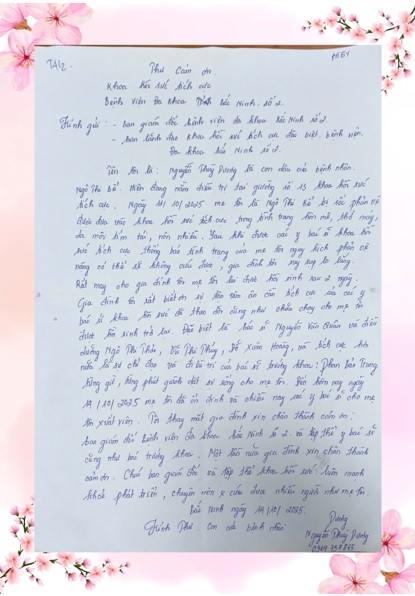 Thư Cảm ơn.
Khoa hồi sức tích cực
Bệnh viện Đa khoa Tỉnh Bắc Ninh số 2.
Kính gửi: - Ban giám đốc bệnh viện đa khoa Bắc Ninh số 2.
- ban lãnh đạo khoa hồi sức tích cực đặc biệt. bệnh viện.
Đa khoa bắc Ninh số 2.
Tên tôi là: Nguyễn Thùy Dương là con dâu của bệnh nhân.
Ngô Thị Bé. Hiện đang nằm điều trị tại giường số 13 khoa hồi sức
tích cực. Ngày 11/10/2025 mẹ tôi là Ngô Thị Bé bị sốc phản vệ
được đưa vào khoa hồi sức tích cực trong tình trạng hôn mê, thở máy,
da môi tím tái, nôn nhiều. Sau khi được các y bác sĩ khoa hồi
sức tích cực thông báo tình trạng của mẹ tôi nguy kịch phản vệ
nặng có thể sẽ không cứu được, gia đình tôi suy sụp lo lắng.
Rất may cho gia đình tôi mẹ tôi đã được hồi sinh sau 2 ngày.
Gia đình tôi rất biết ơn sự tận tâm ân cần tích cực của các y
bác sĩ khoa hồi sức đã theo dõi cũng như chữa chạy cho mẹ tôi
được hồi sinh trở lại. Đặc biệt là bác sĩ Nguyễn Văn Quân và điều
dưỡng Ngô Thị Thảo, Vũ Thị Thủy, Đỗ Xuân Hoàng, và tích cực hơn
nữa là sự chỉ đạo và điều trị của bác sĩ trưởng khoa: Phan Bảo Trung
từng giờ, từng phút giành giật sự sống cho mẹ tôi. Đến hôm nay ngày
14/10/2025 mẹ tôi đã ổn định và chiều nay các y bác sĩ cho mẹ
tôi xuất viện. Tôi thay mặt gia đình xin chân thành cảm ơn:
ban giám đốc bệnh viện Đa khoa Bắc Ninh số 2. và tập thể y bác sĩ
cũng như bác trưởng khoa. Một lần nữa gia đình xin chân thành
cảm ơn. Chúc ban giám đốc và tập thể khoa hồi sức luôn mạnh
khỏe phát triển, chuyên môn cứu được nhiều người như mẹ tôi.
Bắc Ninh ngày 14/10/2025.
Kính Thư con cái bệnh nhân
Dương
Nguyễn Thùy Dương